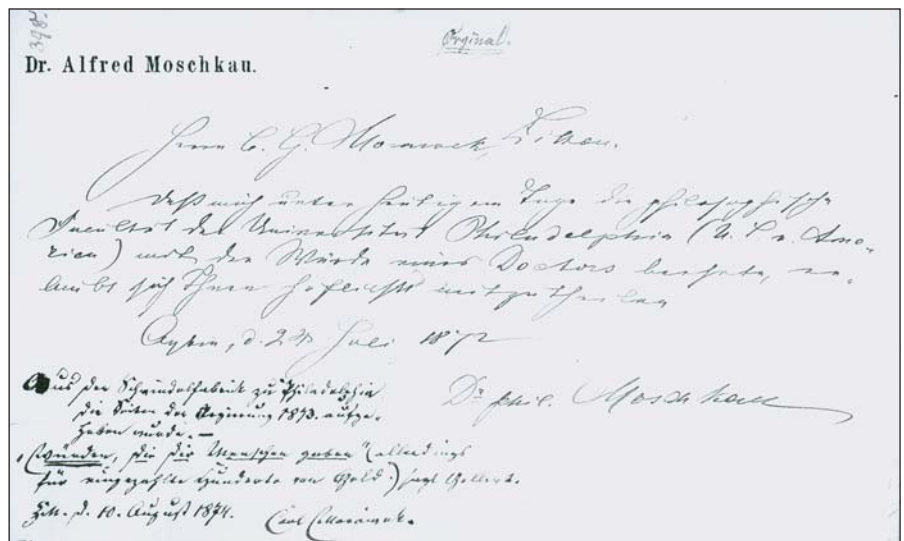 398.
Orginal.
Dr. Alfred Moschkau.
Herrn C. G. Morawek, Zittau.
Daß mich unter heutigem Tage die philosophische
Facultät der Universität Philadelphia (U. S. v. Ame-
rica) mit der Würde eines Doctors beehrte, er-
laubt sich Ihnen höflichst mitzutheilen
Oybin, d. Juli 187
Dr phil. Moschkau
Aus der Schwindelfabrik zu Philadelphia
die Seiten der Regierung 1873. aufge-
hoben wurde. —
"Würden, die die Menschen gaben" (allerdings
für eingezahlte Hunderte von Gold.) sagt Gellert.
Zitt. d. 10. August 1874. Carl Morawek.